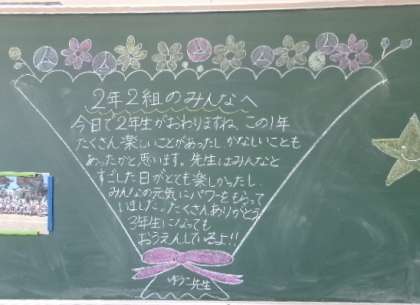 2年2組のみんなへ
今日で2年生がおわりますね。この1年
たくさん楽しいことがあったし かなしいことも
あったかと思います。先生はみんなと
すごした日がとても楽しかったし
みんなの元気にパワーをもらって
いました。たくさんありがとう
3年生になっても
おうえんしているよ!!
ゆうこ先生